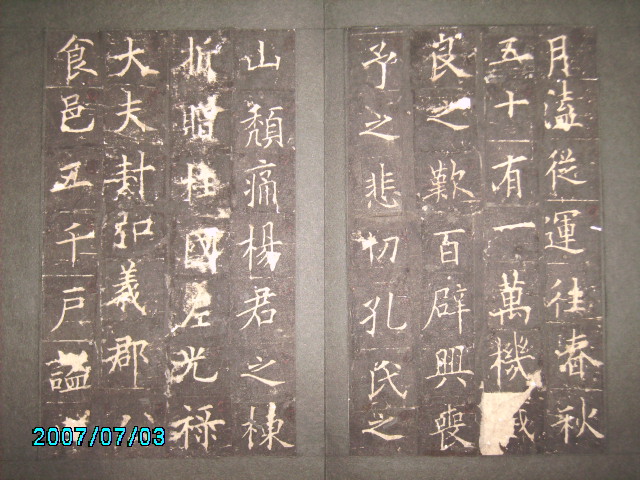 月溘從運往春秋
五十有一萬機
良之歎百辟興喪
予之悲切孔氏之
山頹痛楊君之棟
折贈柱國左光祿
大夫封弘義郡公
食邑五千戶謚
2007/07/03